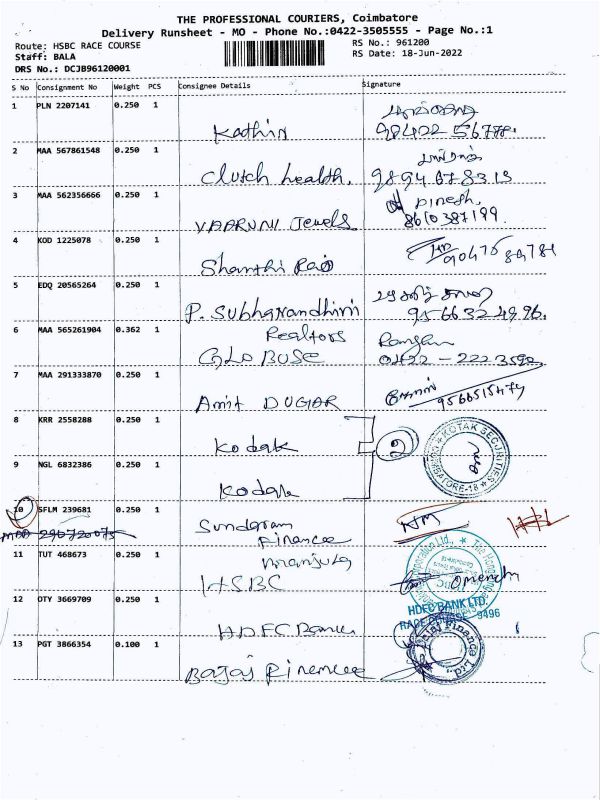 THE PROFESSIONAL COURIERS, Coimbatore
Delivery Runsheet - MO - Phone No.:0422-3505555 - Page No.:1
Route: HSBC RACE COURSE
RS No.: 961200
Staff: BALA
RS Date: 18-Jun-2022
DRS No.: DCJB96120001
S No Consignment No Weight PCS Consignee Details Signature
1 PLN 2207141 0.250 1
Kathir 98422 56778.
2 MAA 567861548 0.250 1
Clutch health. 98946 78313
3 MAA 562356666 0.250 1 Dinesh,
VAARUNI Jewels 8610387199.
4 KOD 1225078 0.250 1
Shanthi Rao
5 EDQ 20565264 0.250 1
P. Subhanandhini 956632 4996.
6 MAA 565261904 0.362 1 Realtors
GLOBUSE 0422 - 222 3592
7 MAA 291333870 0.250 1
Amit DUGAR 9566515479
8 KRR 2558288 0.250 1
Kodak 2 KOTAK SECURITIES
9 NGL 6832386 0.250 1
Kodak
10 SFLM 239681 0.250 1
Sundaram
Finance
11 TUT 468673 0.250 1
HSBC
12 OTY 3669709 0.250 1 HDFC BANK LTD.
RACE COURSE - 9496
HDFC Bank
13 PGT 3866354 0.100 1 Bajaj Finance Ltd
Bajaj Finance